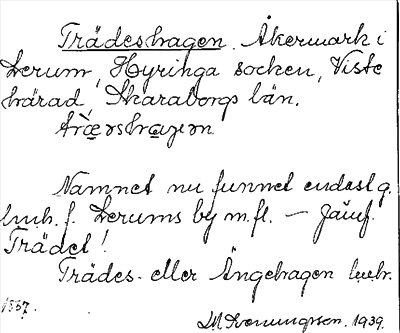 Trädeshagen. Åkermark i
Lerum, Hyringa socken, Viste
härad, Skaraborgs län.
Namnet nu funnet endast g.
lmh. f. Lerums by m. fl. — Jämf.
Trädet!
Trädes- eller Ängehagen lmh.
1857.
1939.